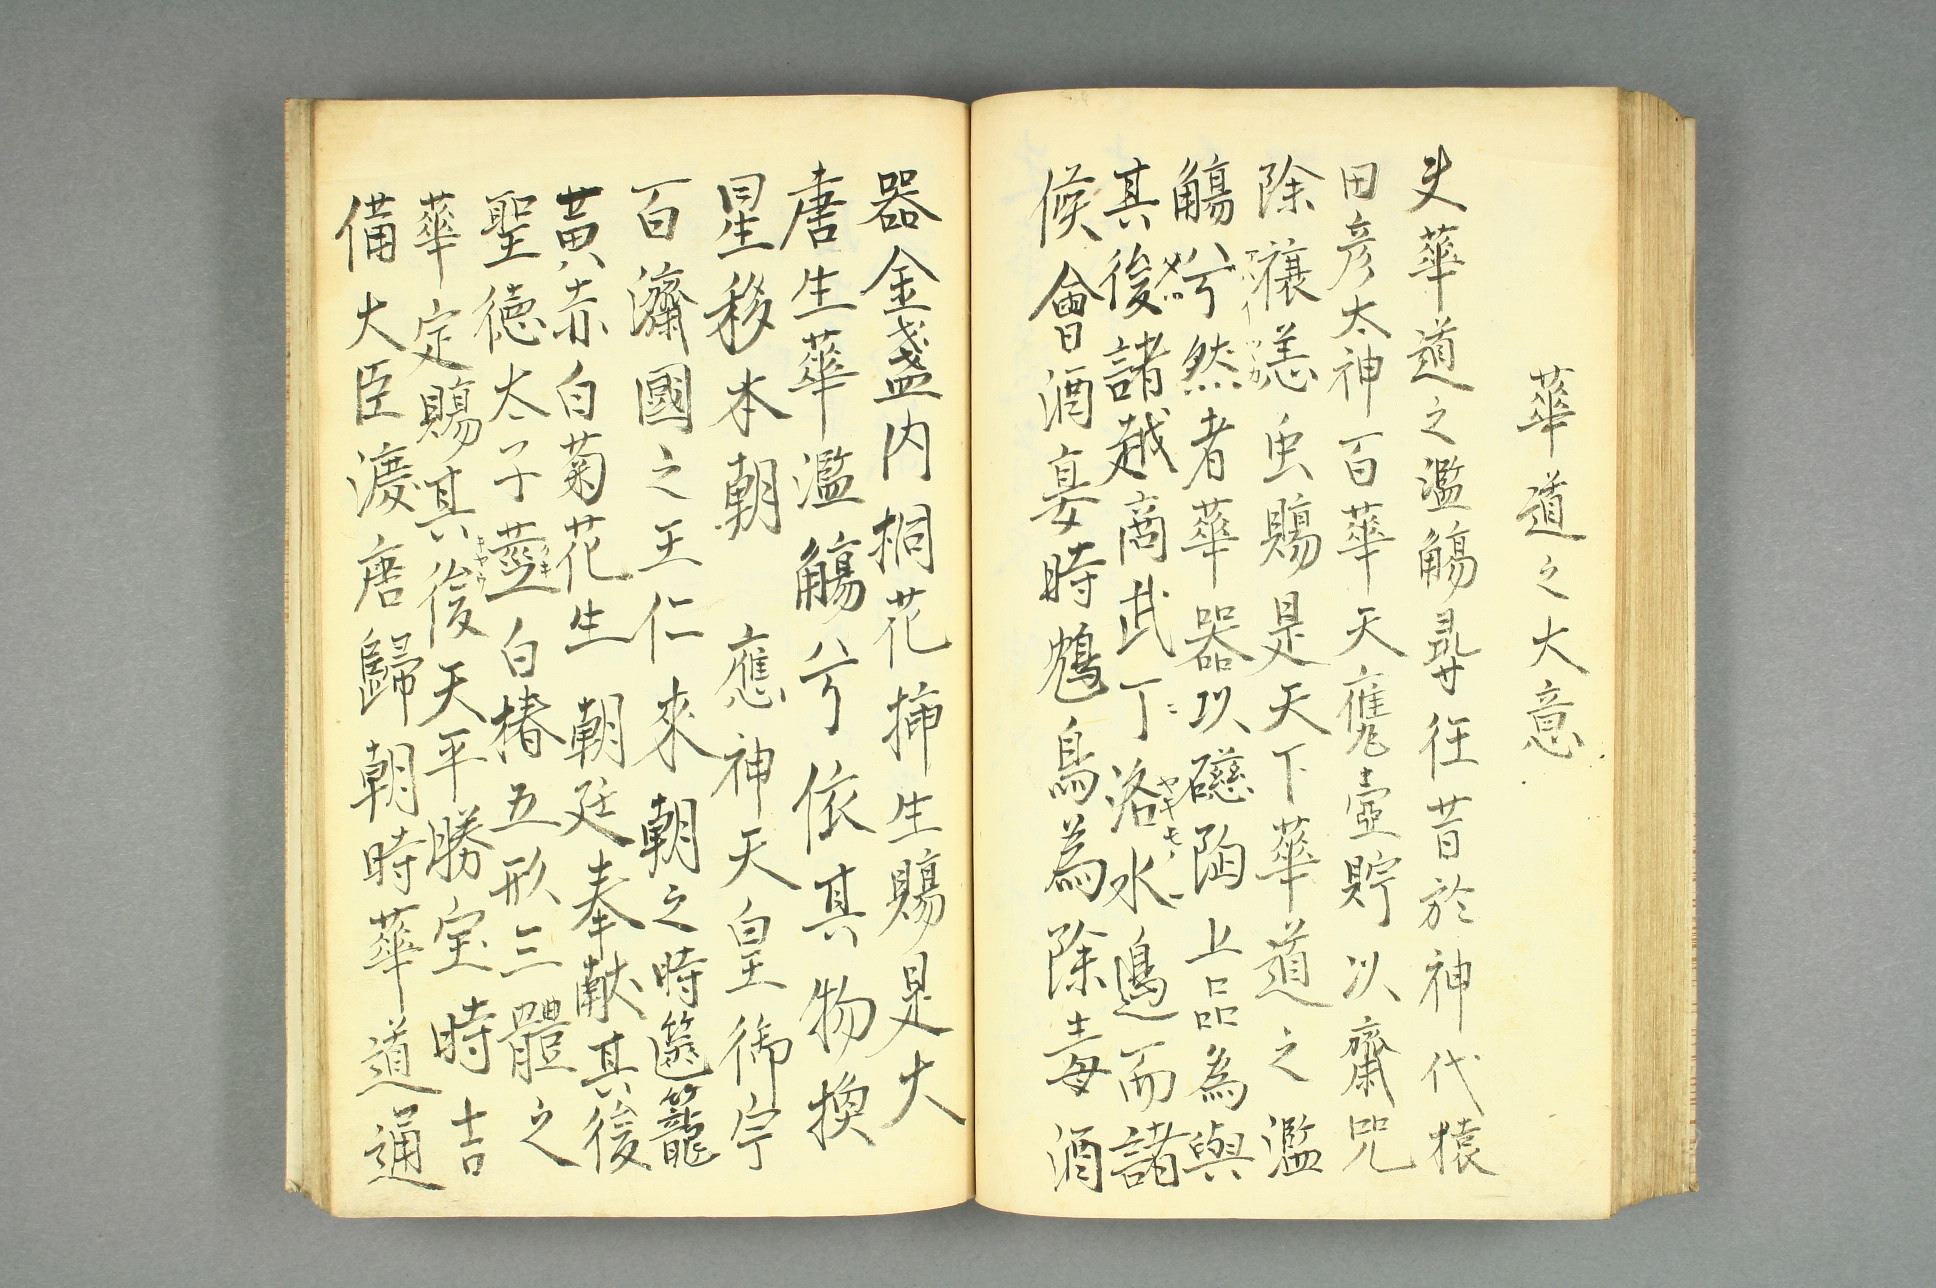 華道之大意
夫華道之濫觴尋往昔於神代猿
田彦太神百華天甕壺貯以齋咒
除禳恙虫賜是天下華道之濫
觴兮然者華器以礠陶上品為與
其後諸越商武丁洛水邊而諸
候會酒宴時鴆鳥為除毒酒
器金盞内桐花挿生賜是大
唐生華濫觴兮依其物換
星移本朝 應神天皇御宇
百濟國之王仁來朝之時籩籠
黃赤白菊花生 朝廷奉献其後
聖徳太子 白椿五形三體之
華定賜其後天平勝宝時吉
備大臣渡唐歸朝時華道通